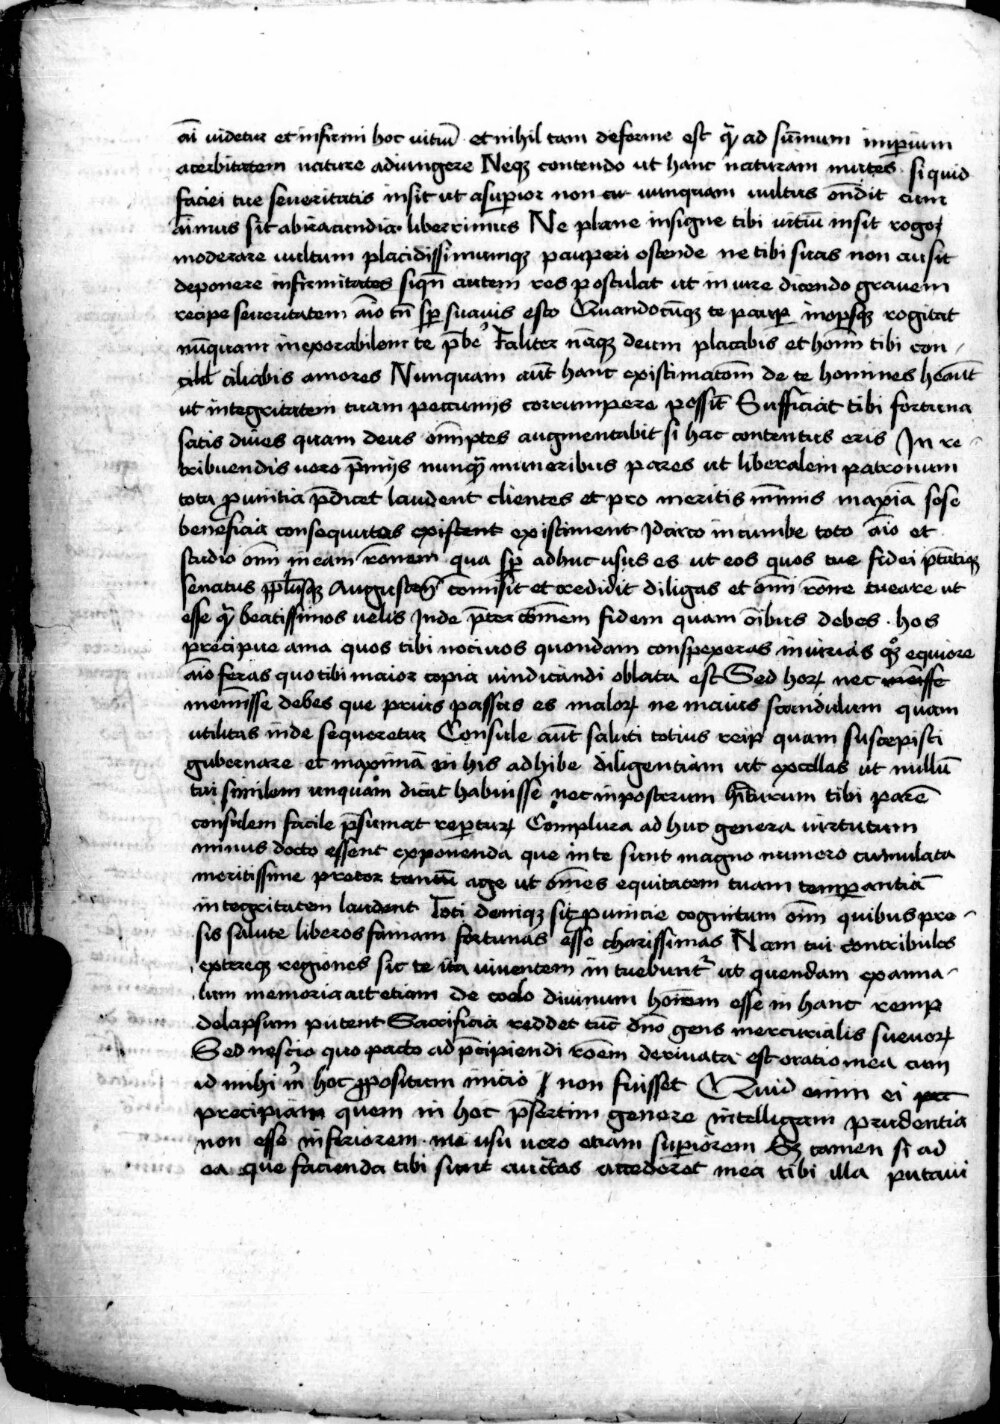 ai̅ videtur et infirmi hoc vitiu̅ et nihil tam deforme est q̅ȝ ad su̅mum imperium
acerbitatem nature adiungere Neqȝ contendo ut hanc naturam mutes si quid
faciei tue severitatis insit ut asperior non cu̅ nunquam vultus ondit cum
ai̅mus sit ab iracundia liberrimus Ne plane insigne tibi vitiu̅ insit rogoꝝ
moderare vultum placidissimumqȝ pauperi ostende ne tibi suas non ausit
deponere infirmitates siqn̅ autem res postulat ut in iure dicendo gravem
recipe severitatem aīo tn̅ sp̅ suavis esto Quandocu̅qȝ te paup̲ inopsqȝ rogitat
nu̅quam inexorabilem te p̅be Taliter na̅qȝ deum placabis et homi̅ tibi con-
cilia̅ ciliabis amores Nunquam aut̅ hanc existimatōm de te homines hea̅nt
ut integritatem tuam pecunijs corrumpere possi̅t Sufficiat tibi fortuna
satis dives quam deus om̅ptes augmentabit si hac contentus eris In re-
tribuendis vero p̅mijs nunq̅ȝ muneribus pares ut liberalem patronum
tota ꝓvintia p̅dicet laudent clientes et pro meritis mi̅mis maxi̅a sese
beneficia consequutos existent existiment Idcirco incumbe toto aīo et
studio om̅i in eam ro̅nem qua sp̅ adhuc usus es ut eos quos tue fidei p̅tatiqȝ
senatus pp̅lusqȝ Augusten̅ comisit et credidit diligas et om̅i ro̅ne tueare ut
esse q̅ȝ beatissimos velis Inde p̅ter com̅em fidem quam oi̅bus debes hos
precipue ama quos tibi nocivos quondam conspexeras iniurias qȝ equiore
aīo feras quo tibi maior copia vindicandi oblata est Sed hoꝝ nec me̅isse
memi̅sse debes que prius passus es maloꝝ ne maius scandulum quam
utilitas inde sequeretur Consule aut̅ saluti totius reip̅ quam suscepisti
gubernare et maxima̅ in his adhibe diligentiam ut excellas ut nullu̅
tui similem unquam dicat habuisse nec inposterum h̅iturum tibi pare̅
consulem facile p̅sumat repertuꝝ Complura adhuc genera virtutum
minus docto essent exponenda que in te sunt magno numero cumulata
meritissime pretor tantu̅ age ut om̅es equitatem tuam temperantia̅
integritatem laudent Toti deniqȝ sit ꝓvincie cognitum om̅i quibus pre-
sis salute liberos famam fortunas esse charissimas Nam tui contribules
extereqȝ regiones sic te ita viventem intuebunt̅ ut quendam ex anna-
lium memoria aut etiam de coelo divinum hoi̅em esse in hanc remp̲
delapsum putent Sacrificia reddet tu̅c dn̅o gens mercurialis suevoꝝ
Sed nescio quo pacto ad p̅cipiendi ro̅em derivata est oratio mea cum
id mihi in hoc ꝓpositum initio non fuisset Quid enim ei pre
precipiam quem in hoc p̅sertim genere intelligam prudentia
non esse inferiorem me usu vero etiam superiorem Sȝ tamen si ad
ea que facienda tibi sunt auctas accederet mea tibi illa putavi